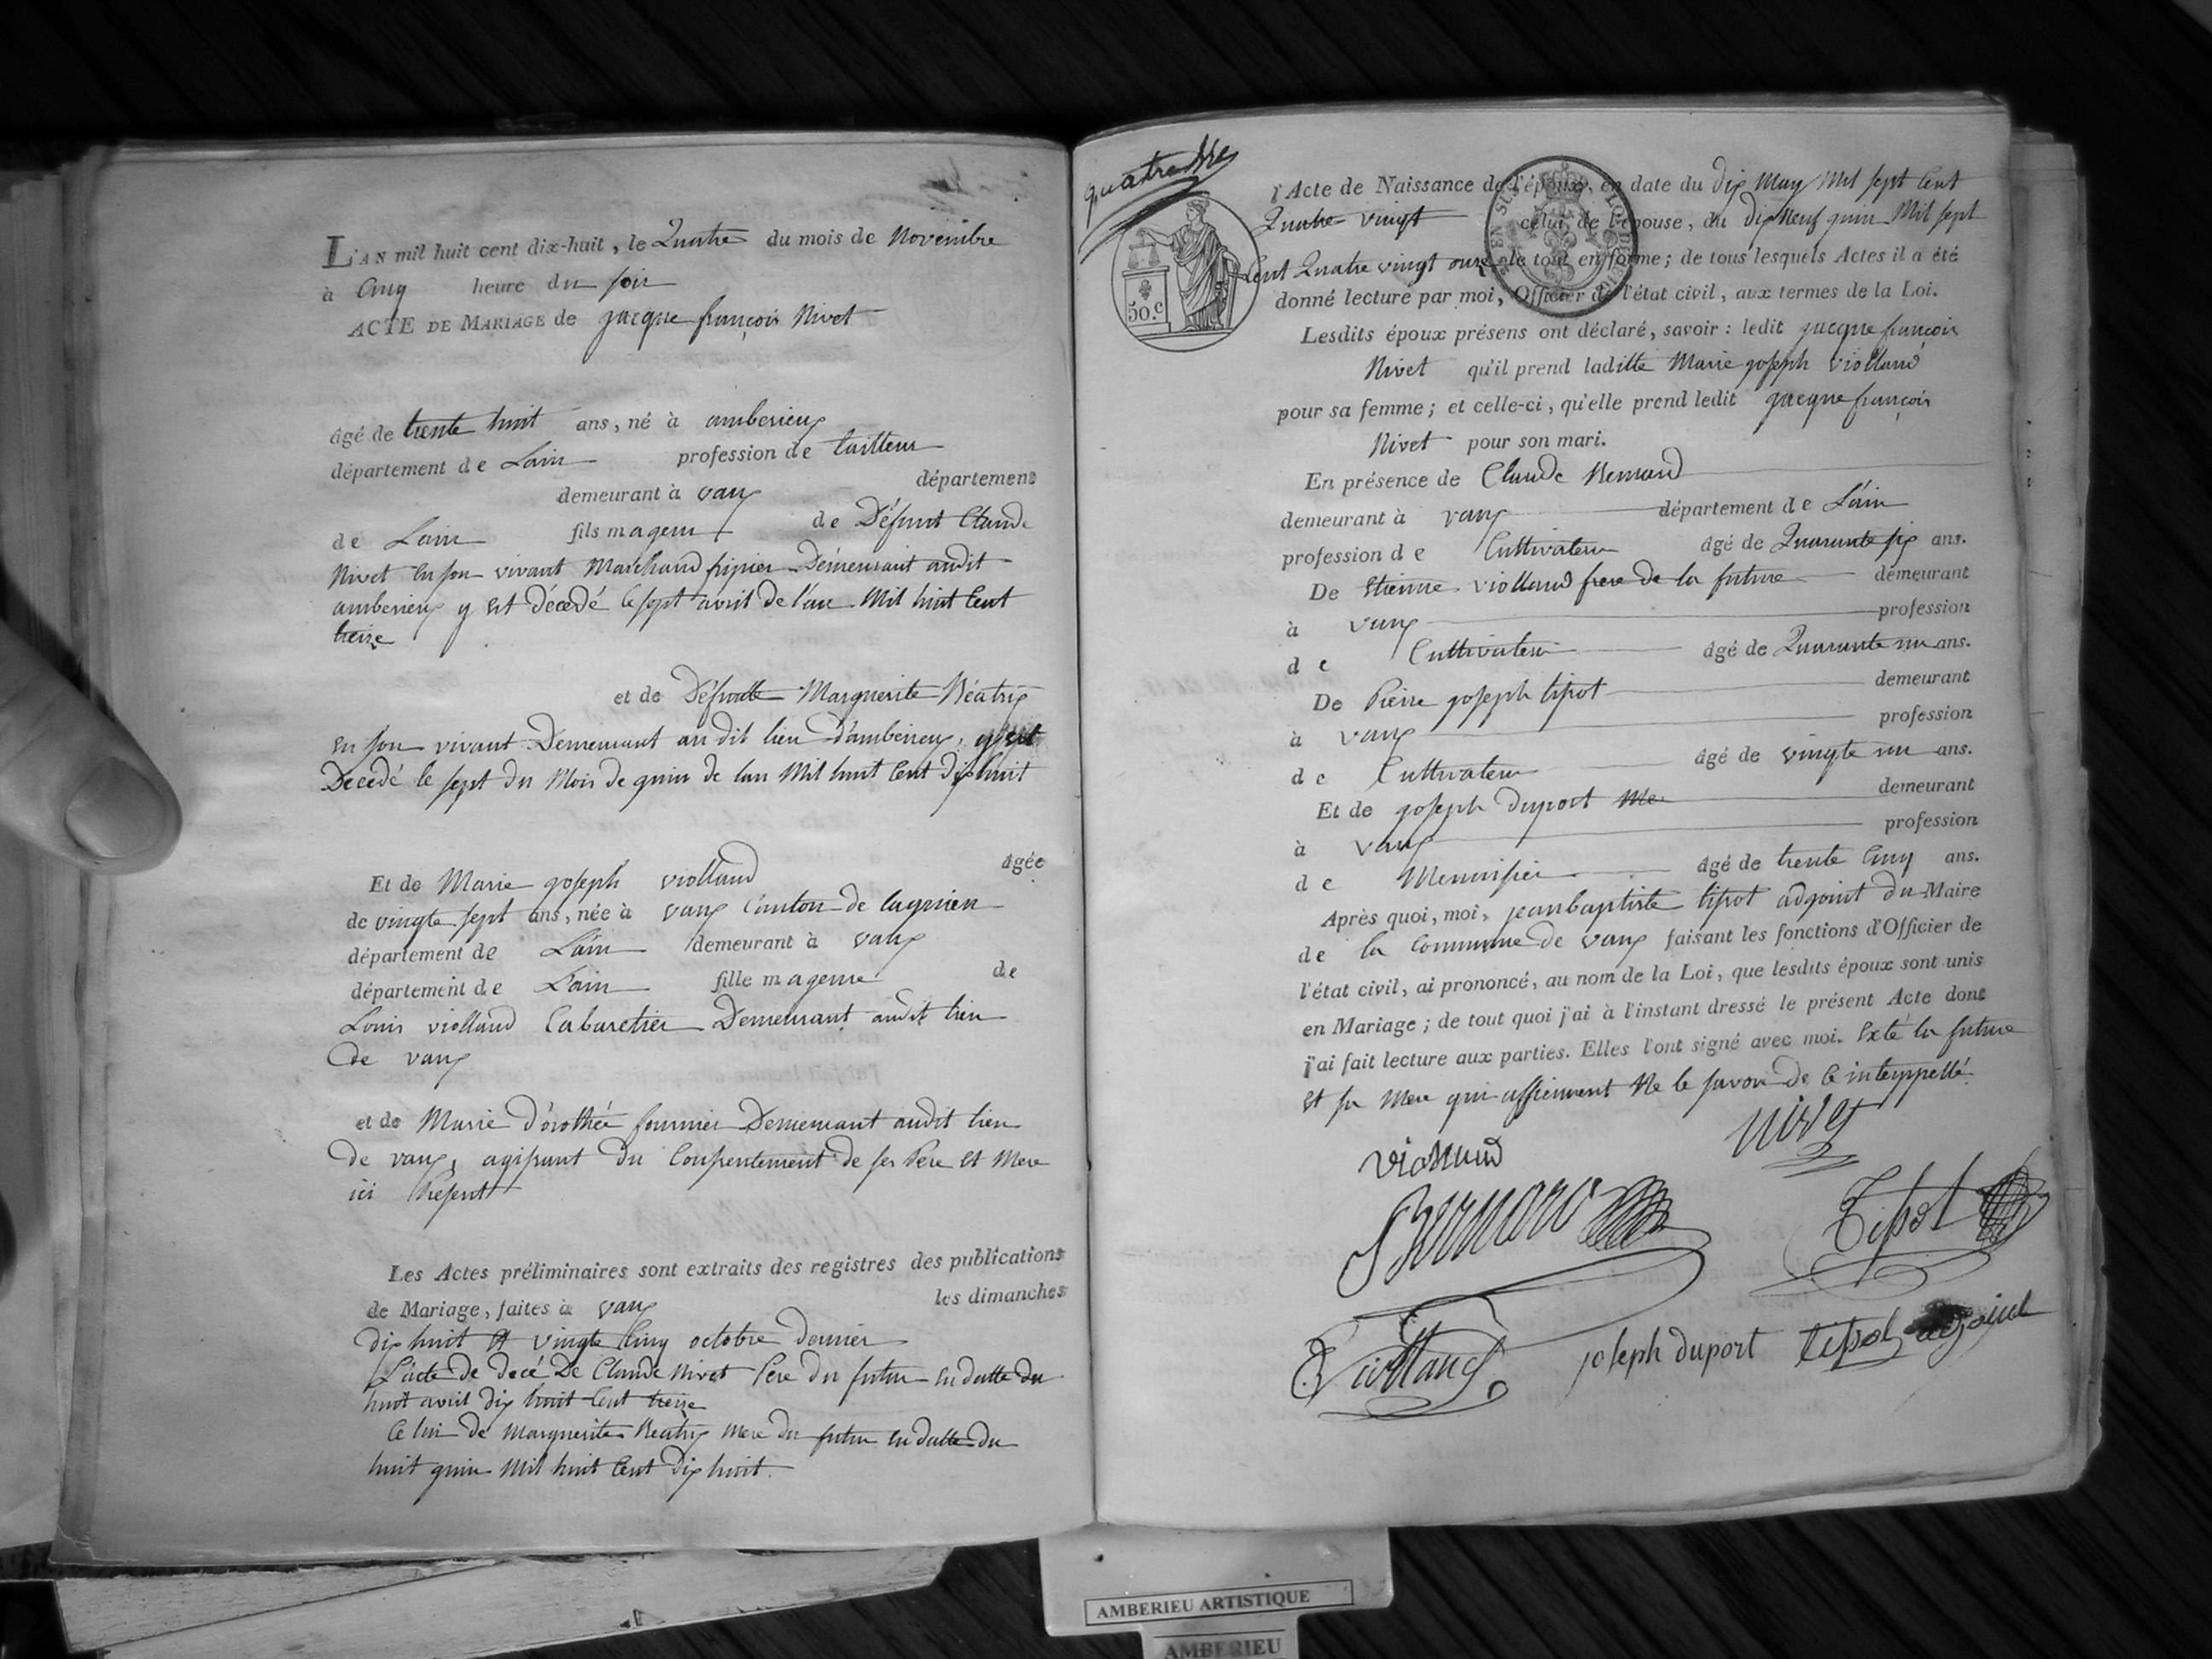 L'AN mil huit cent dix-huit, le Quatre du mois de Novembre
à Cinq heure du soir
ACTE DE MARIAGE de jacque françois Nivet
âgé de trente huit ans, né à amberieux
département de Lain profession de tailleur
demeurant à vaux département
de Lain fils mageur de Défunt Claude
Nivet en son vivant Marchand fripier Demeurant audit
amberieux y est décedé le sept avril de l'an Mil huit Cent
treize
et de Défunte Marguerite Béatrix
en son vivant Demeurant au dit lieu d'amberieux, y est
Decedé le sept du Mois de quin de lan Mil huit Cent dixhuit
Et de Marie goseph violland âgée
de vingte sept ans, née à vaux Canton de lagnieu
département de Lain demeurant à vaux
département de Lain fille mageure de
Louis violland Cabaretier Demeurant audit lieu
de vaux
et de Marie d'orothée fournier Demeurant audit lieu
de vaux, agissant du Consentement de ses Pere et Mere
ici Present
Les Actes préliminaires sont extraits des registres des publications
de Mariage, faites à vaux les dimanches
dix huit et vingte Cinq octobre dernier
L'acte de decé De Claude Nivet Pere du futur en datte du
huit avril dix huit Cent treize
Ce lui de Marguerite Beatrix Mere du futur en datte du
huit quin Mil huit Cent dix huit.
quatre
50.c
l'Acte de Naissance de l'époux, en date du dix May Mil sept Cent
Quatre vingt celui de l'épouse, du dix Neuf quin Mil sept
Cent Quatre vingt onze le tout en forme; de tous lesquels Actes il a été
donné lecture par moi, Officier de l'état civil, aux termes de la Loi.
Lesdits époux présens ont déclaré, savoir: ledit jacque françois
Nivet qu'il prend laditte Marie goseph violland
pour sa femme; et celle-ci, qu'elle prend ledit jacque françois
Nivet pour son mari.
En présence de Claude Bernard
demeurant à vaux département de L'ain
profession de Cultivateur âgé de Quarante six ans.
De Etienne violland frere de la future demeurant
à vaux profession
de Cultivateur âgé de Quarante un ans.
De Pierre goseph tissot demeurant
à vaux profession
de Cultivateur âgé de vingte un ans.
Et de goseph duport demeurant
à vaux profession
de Menuisier âgé de trente Cinq ans.
Après quoi, moi, jeanbaptiste tissot adgoint du Maire
de la Commune de vaux faisant les fonctions d'Officier de
l'état civil, ai prononcé, au nom de la Loi, que lesdits époux sont unis
en Mariage; de tout quoi j'ai à l'instant dressé le présent Acte dont
j'ai fait lecture aux parties. Elles l'ont signé avec moi. Exté la future
et sa Mere qui affirment Ne le savoir de Ce interppellé.
nivet
violland
Bernard
Tissot
Violland
joseph duport
tissot adjoint
AMBERIEU ARTISTIQUE
AMBERIEU